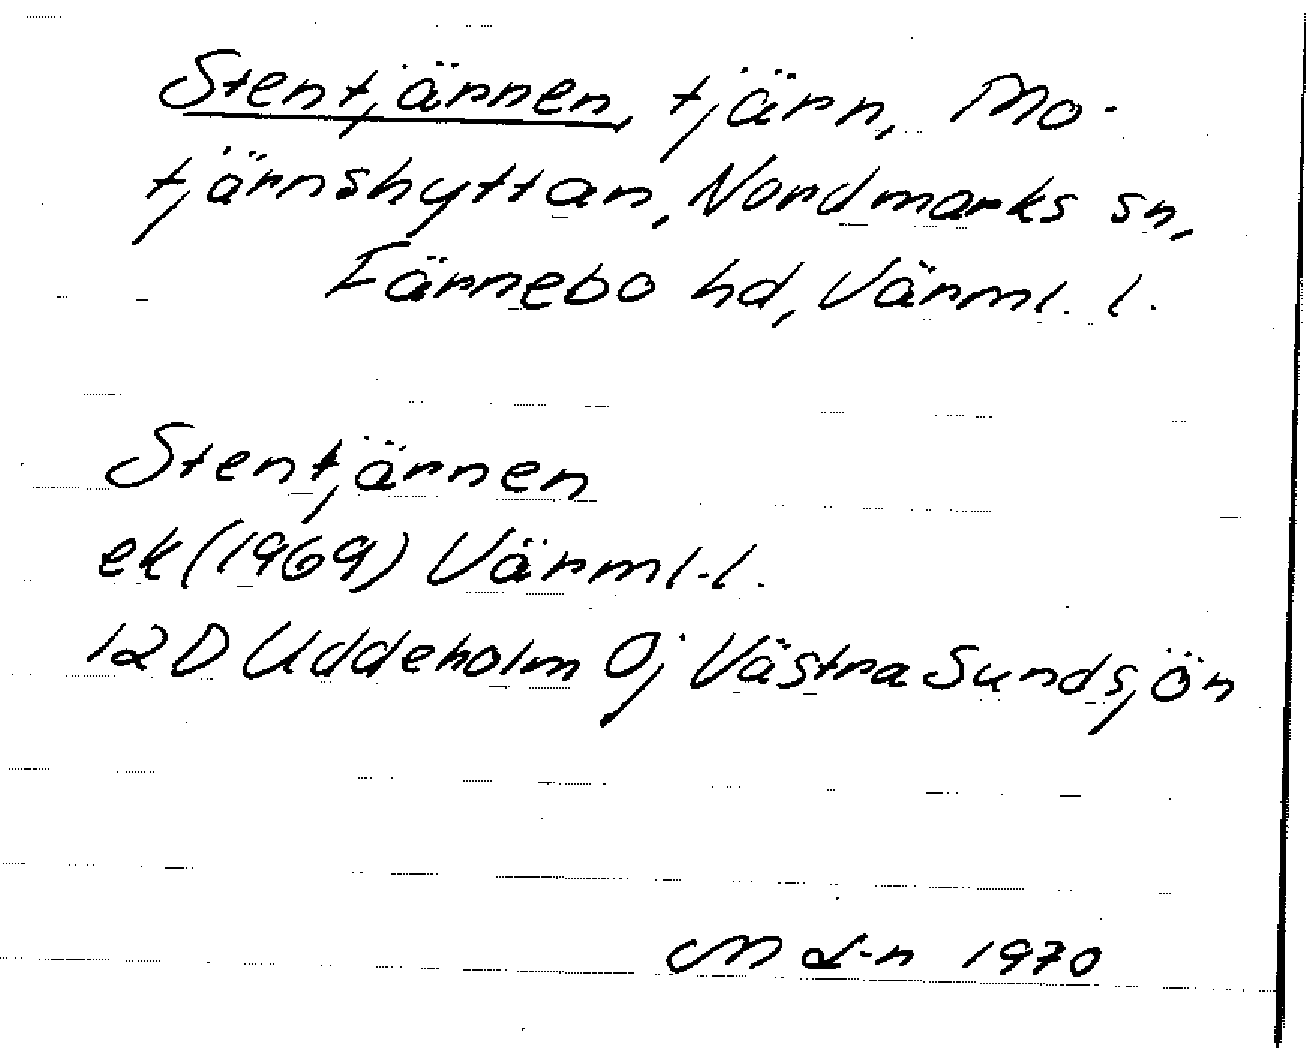 Stentjärnen, tjärn, Mo-
tjärnshyttan, Nordmarks sn,
Färnebo hd, Värml. l.
Stentjärnen
ek (1969) Värml.l.
12D Uddeholm 0j Västra Sundsjön
M L-n 1970